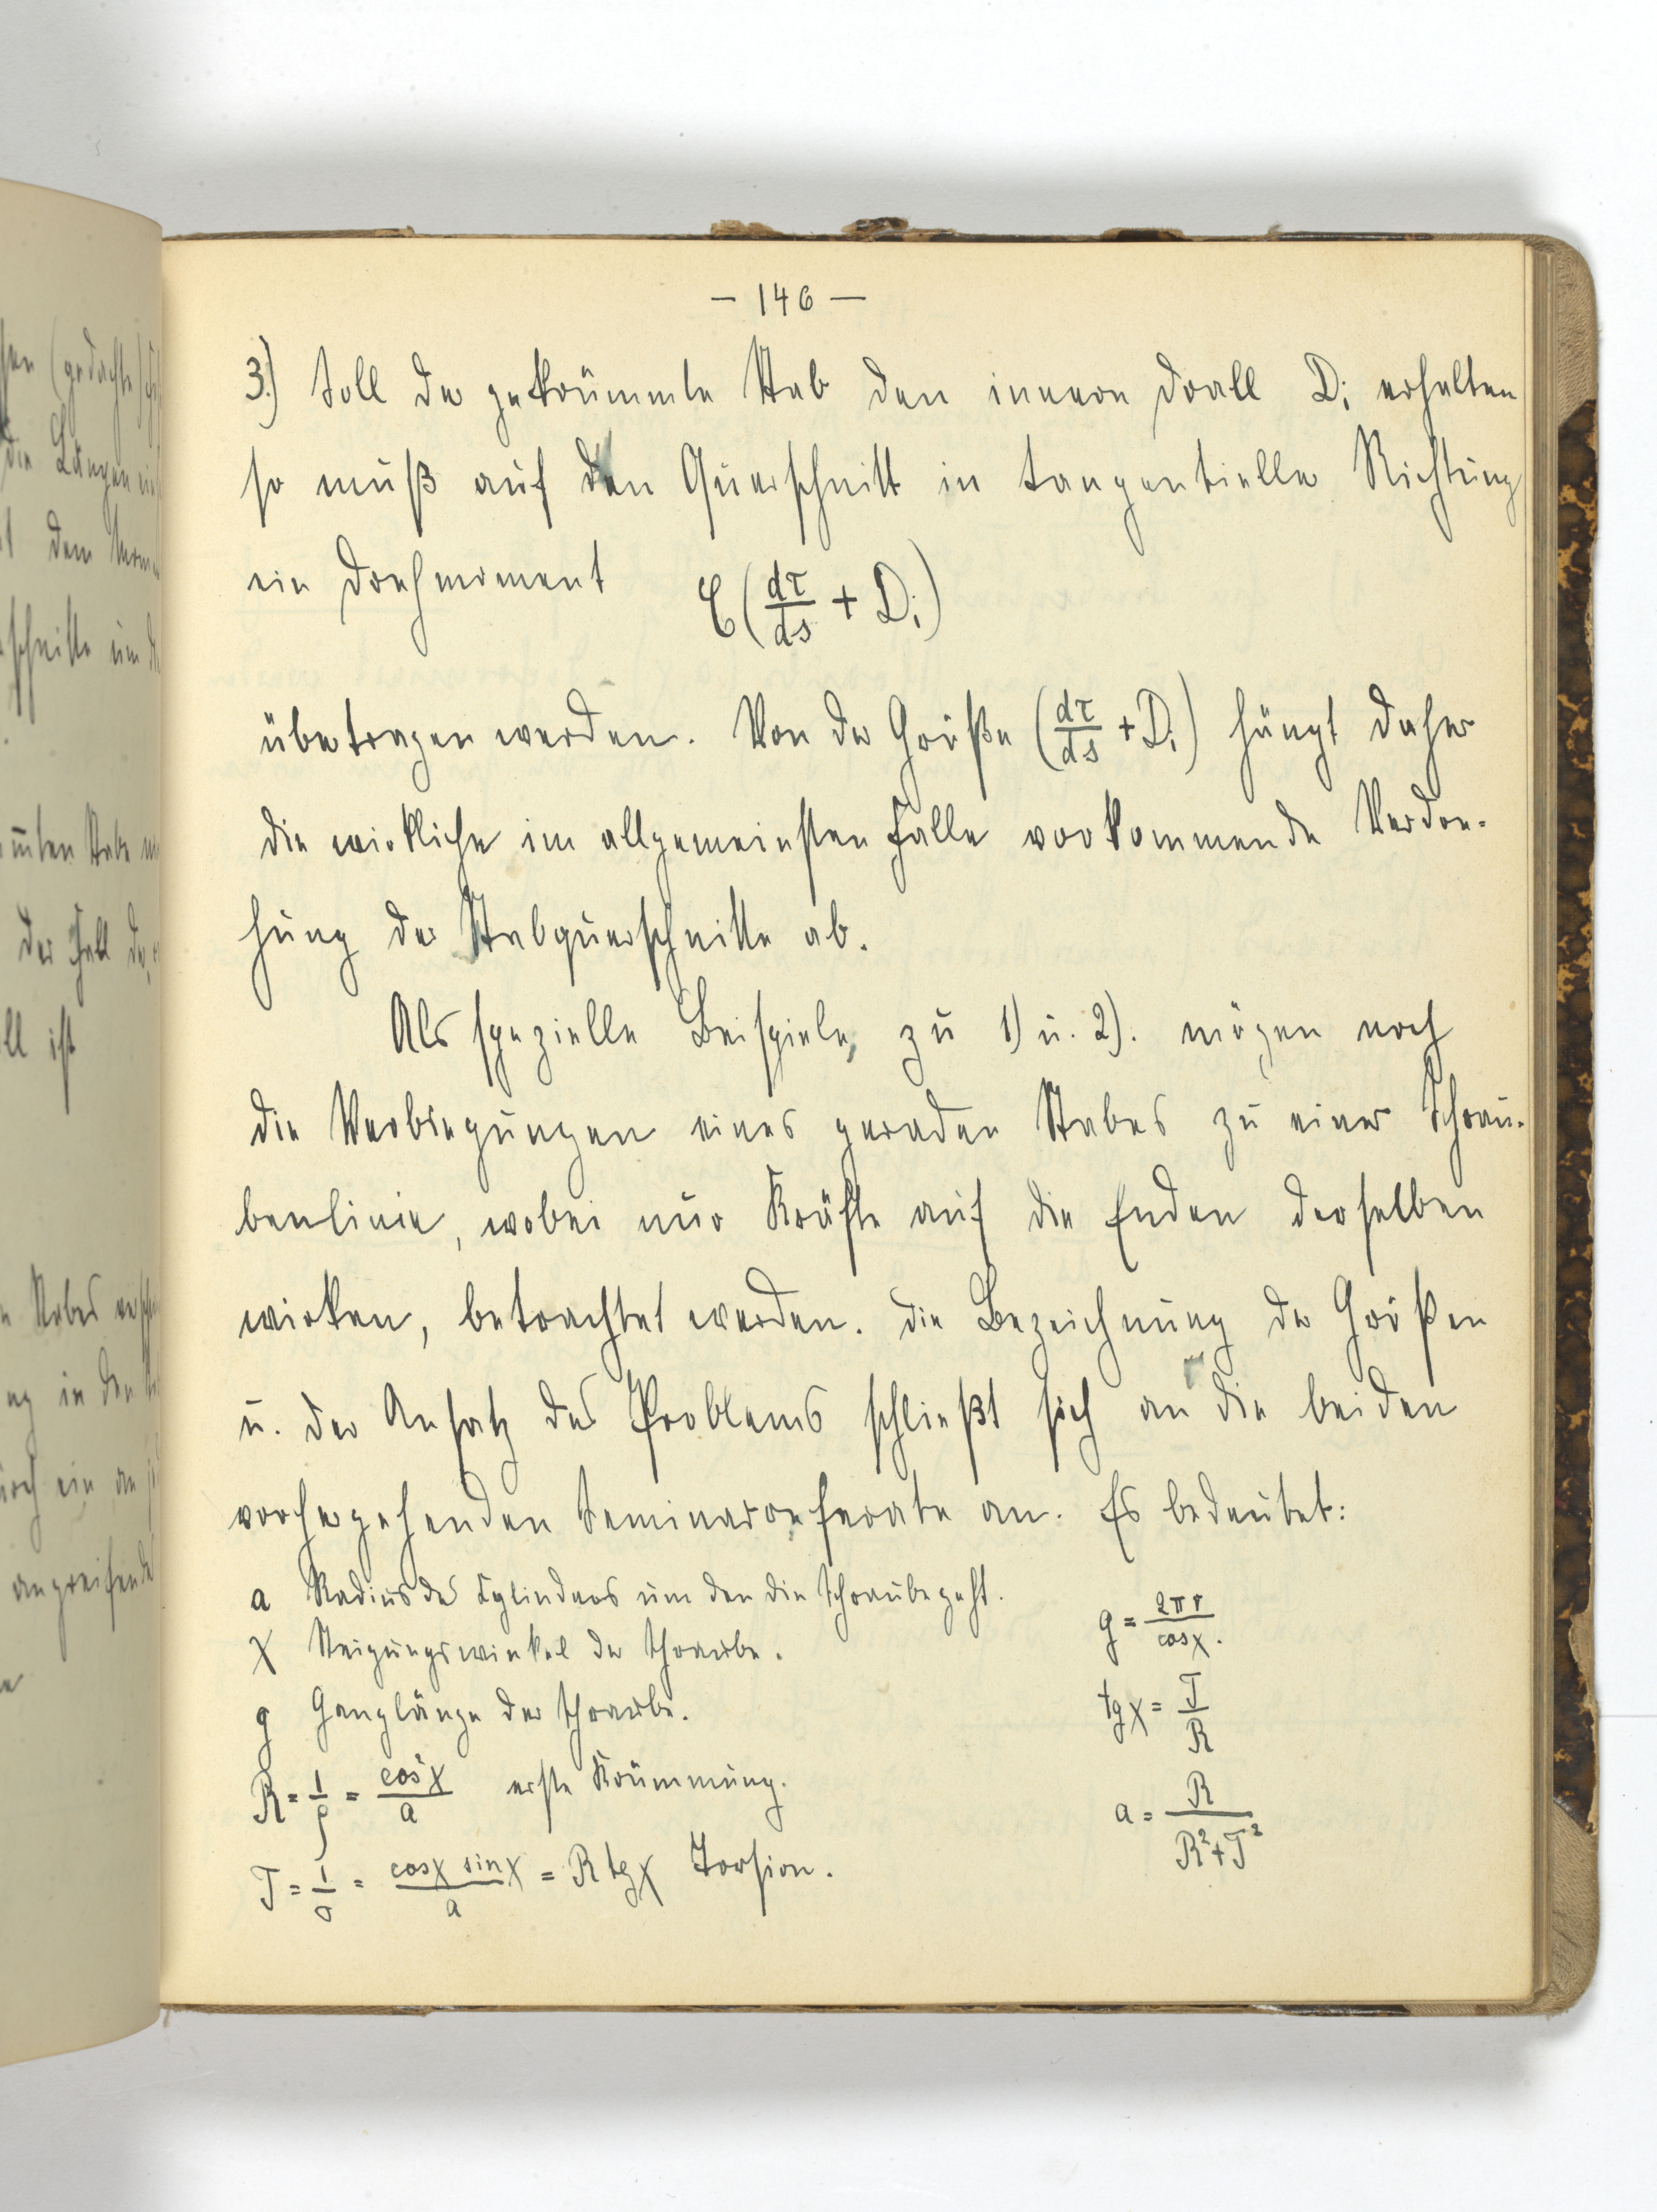 — 146 —
3.) Soll der gekrümmte Stab den innern Drall Dᵢ erhalten
so muß auf den Querschnitt in tangentieller Richtung
ein Drehmoment ℭ(dτ/ds + Dᵢ)
übertragen werden. Von der Größe (dτ/ds + Dᵢ) hängt daher
die wirkliche im allgemeinsten Falle vorkommende Verdre-
hung der Stabquerschnitte ab.
Als spezielle Beispiele, zu 1) u. 2). mögen noch
die Verbiegungen eines geraden Stabes zu einer Schrau-
benlinie, wobei nur Kräfte auf die Enden derselben
wirken, betrachtet werden. Die Bezeichnung der Größen
u. der Ansatz des Problems schließt sich an die beiden
vorhergehenden Seminarreferate an. Es bedeutet:
a Radius des Cylinders um den die Schraube geht.
χ Steigungswinkel der Schraube.
g Ganglänge der Schraube.
R = 1/ρ = cos²χ/a erste Krümmung.
T = 1/σ = cosχ sinχ/a = R tgχ Torsion.
g = 2πr/cosχ.
tgχ = T/R
a = R/(R²+T²)
(gedachte)
die Längen
dem
schnitte um
Stabe
der Fall
ll ist
Stabes
ng in der
durch ein an
angreifende